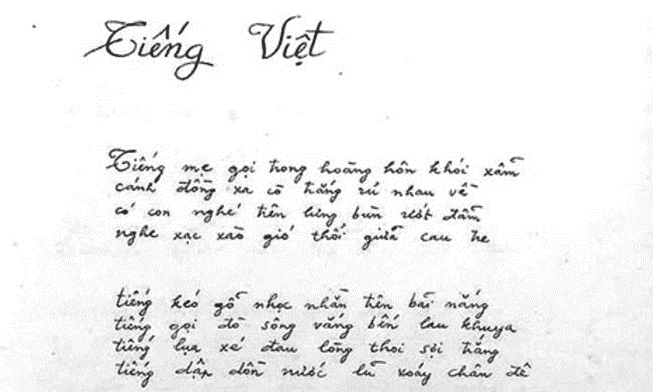 Tiếng Việt
Tiếng mẹ gọi trong hoàng hôn khói xẫm
cánh đồng xa cò trắng rủ nhau về
có con nghé trên lưng bùn ướt đẫm
nghe xạc xào gió thổi giữa cau tre
tiếng kéo gỗ nhọc nhằn trên bãi nắng
tiếng gọi đò sông vắng bến lau khuya
tiếng lụa xé đau lòng thoi sợi trắng
tiếng dập dồn nước lũ xoáy chân đê